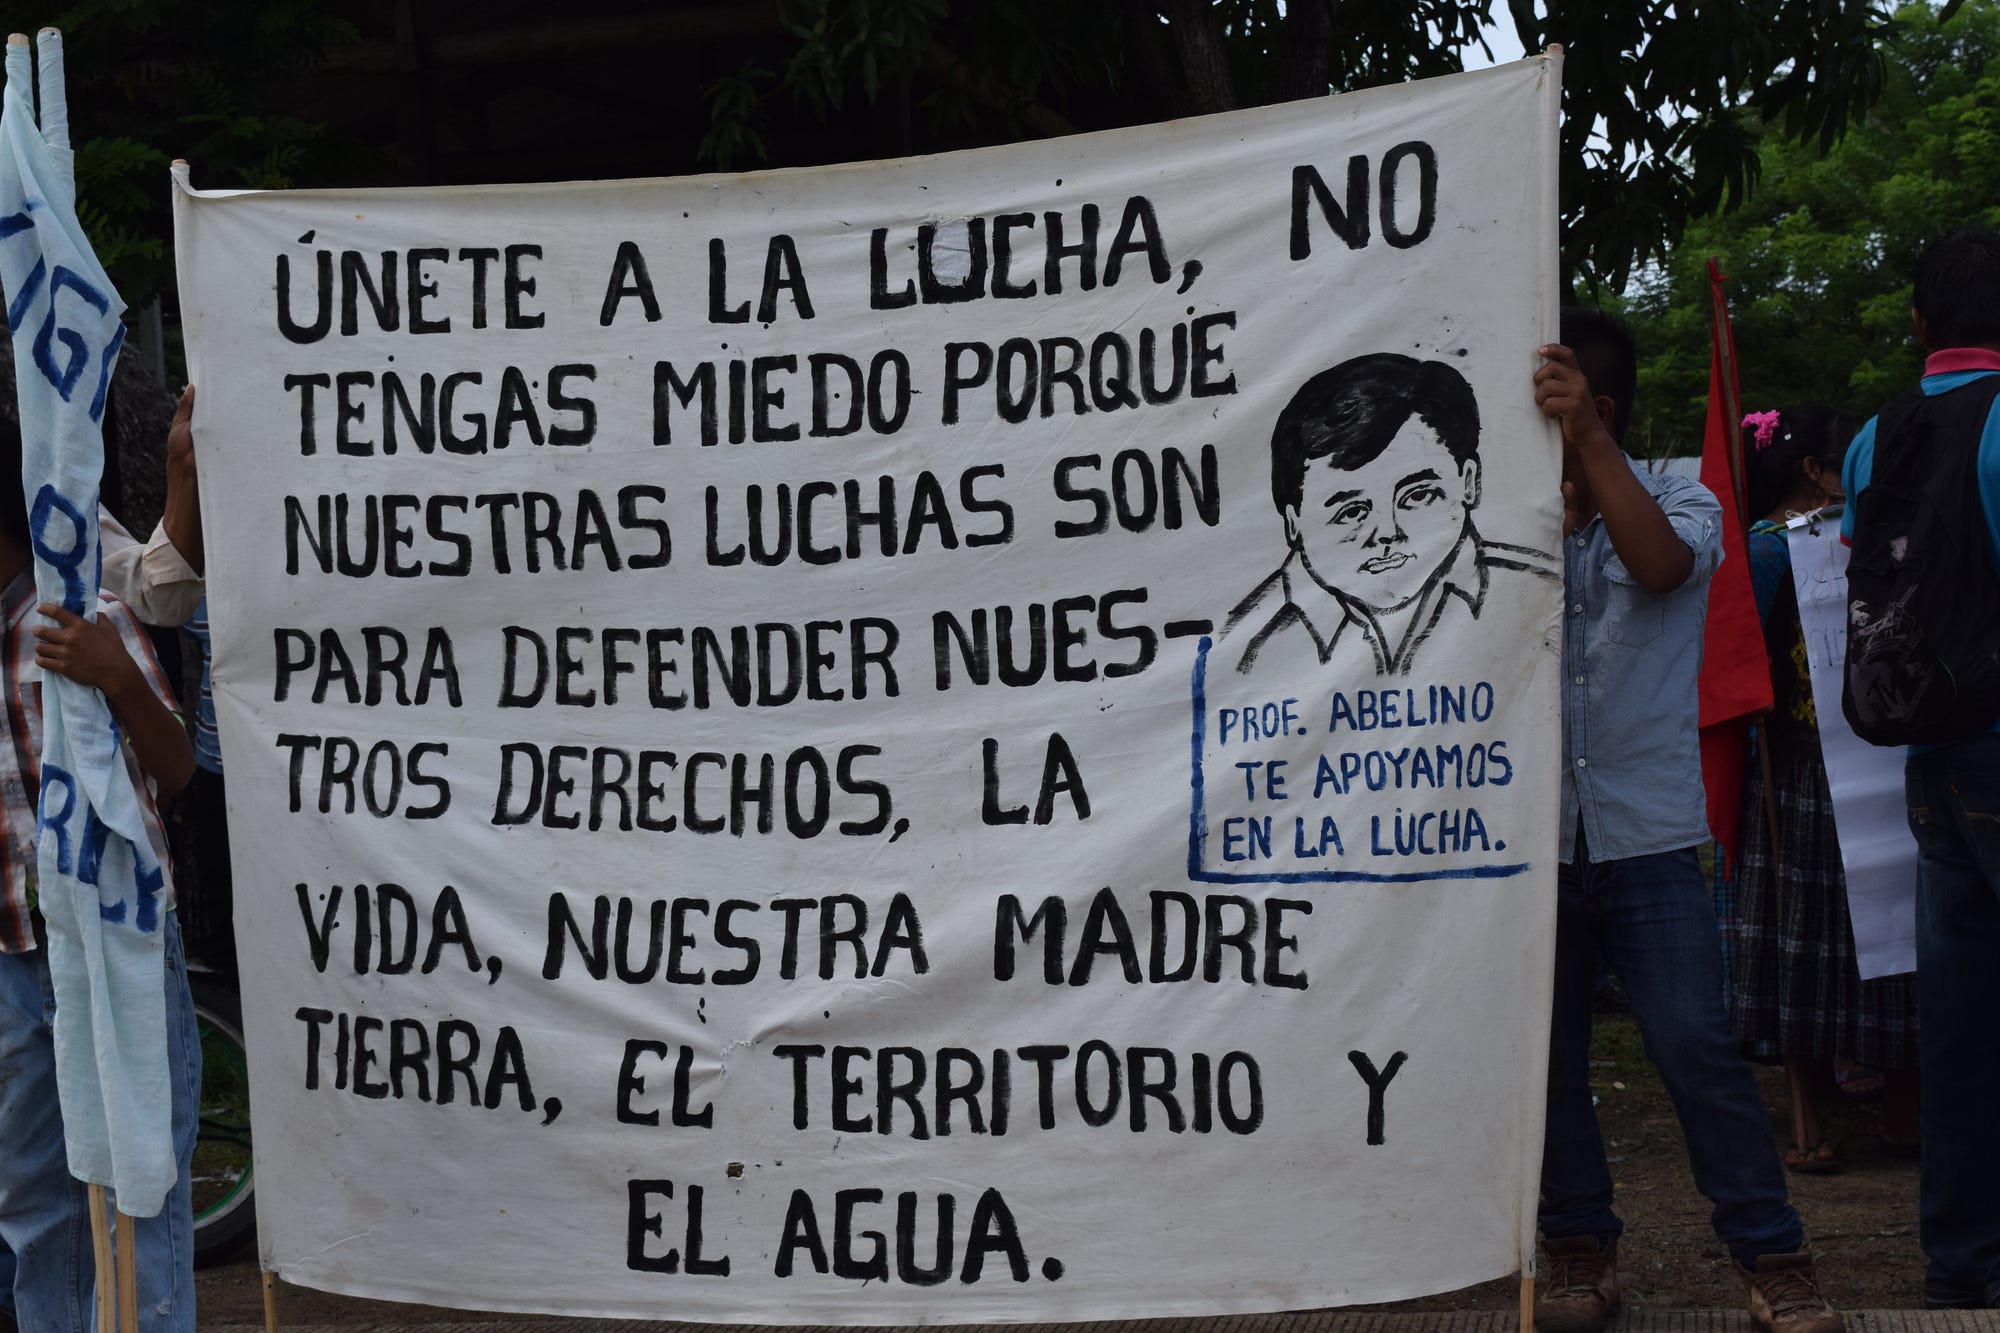 ÚNETE A LA LUCHA, NO
TENGAS MIEDO PORQUE
NUESTRAS LUCHAS SON
PARA DEFENDER NUES-
TROS DERECHOS, LA
VIDA, NUESTRA MADRE
TIERRA, EL TERRITORIO Y
EL AGUA.
PROF. ABELINO
TE APOYAMOS
EN LA LUCHA.